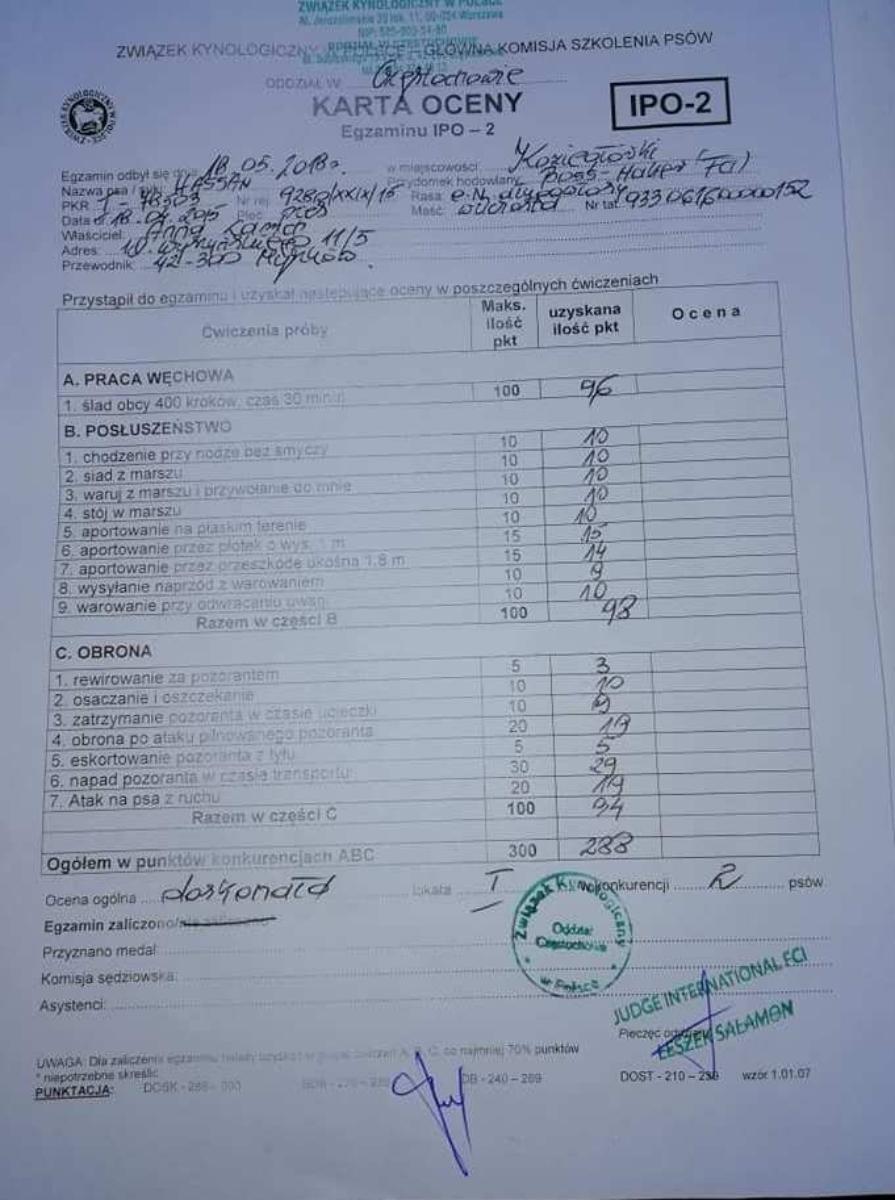 ZWIĄZEK KYNOLOGICZNY W POLSCE
Al. Jerozolimskie 30 lok. 11, 00-024 Warszawa
ZWIĄZEK KYNOLOGICZNY W POLSCE – GŁÓWNA KOMISJA SZKOLENIA PSÓW
ODDZIAŁ W Częstochowie
KARTA OCENY
IPO-2
Egzaminu IPO – 2
Egzamin odbył się dnia 18.05.2018r. w miejscowości: Koziegłówki
Nazwa psa / suki: HASSAN Przydomek hodowlany: (FCI)
PKR. I - 48503 Nr rej. Rasa: o.N. długowłosy
Data ur. 18.04.2015 Płeć: pies Maść: wilczasta Nr tat. 933061600000152
Właściciel: Anna
Adres: 11/5
Przewodnik: 42-300 Myszków
Przystąpił do egzaminu i uzyskał następujące oceny w poszczególnych ćwiczeniach
Ćwiczenia próby Maks. ilość pkt uzyskana ilość pkt Ocena
A. PRACA WĘCHOWA
1. ślad obcy 400 kroków, czas 30 minut 100 96
B. POSŁUSZEŃSTWO
1. chodzenie przy nodze bez smyczy 10 10
2. siad z marszu 10 10
3. waruj z marszu i przywołanie do mnie 10 10
4. stój w marszu 10 10
5. aportowanie na płaskim terenie 10 10
6. aportowanie przez płotek o wys. 1 m 15 15
7. aportowanie przez przeszkodę ukośną 1,8 m 15 14
8. wysyłanie naprzód z warowaniem 10 9
9. warowanie przy odwracaniu uwagi 10 10
Razem w części B 100 98
C. OBRONA
1. rewirowanie za pozorantem 5 3
2. osaczanie i oszczekanie 10 10
3. zatrzymanie pozoranta w czasie ucieczki 10 9
4. obrona po ataku pilnowanego pozoranta 20 19
5. eskortowanie pozoranta z tyłu 5 5
6. napad pozoranta w czasie transportu 30 29
7. Atak na psa z ruchu 20 19
Razem w części C 100 94
Ogółem w punktów konkurencjach ABC 300 288
Ocena ogólna doskonała lokata I w konkurencji 2 psów
Egzamin zaliczono/nie zaliczono*
Przyznano medal:
Komisja sędziowska:
Asystenci:
Związek Kynologiczny w Polsce
Oddział
Częstochowa
JUDGE INTERNATIONAL FCI
LESZEK SALAMON
UWAGA: Dla zaliczenia egzaminu należy uzyskać w grupie ćwiczeń A, B, C, co najmniej 70% punktów
* niepotrzebne skreślić
PUNKTACJA: DOSK - 286 – 300 BDB - 270 – 285 DB - 240 – 269 DOST - 210 – 239 wzór 1.01.07